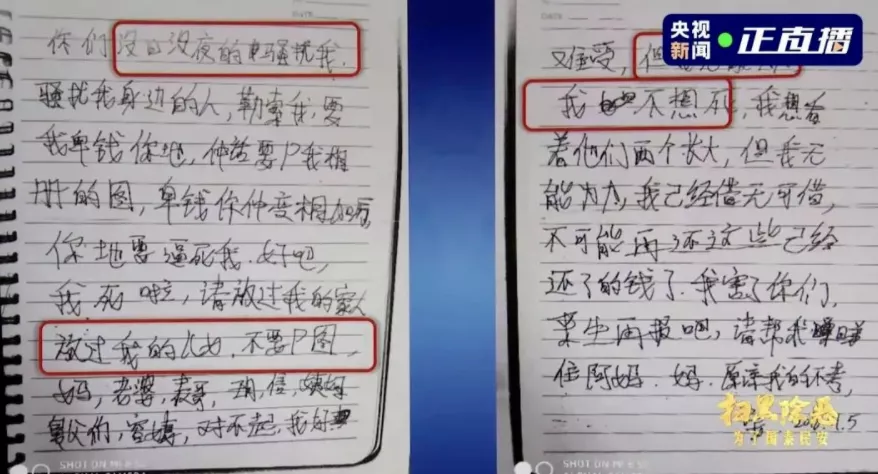 你们没日没夜的骚扰我,
骚扰我身边的人,勒索我,要
我畀钱你地,仲话要P我相
册的图,畀钱你仲变相加
你地要逼死我.好吧,
我死啦,请放过我的家人
放过我的儿女.不要P图,
妈,老婆,表哥,
舅父们,对不起,我好
央视新闻 正直播
难受,但
我不想死,我想看
着他们两个长大,但我无
能为力,我已经借无可借,
不可能再还这些已经
还了的钱了.我害了你们,
来生再报吧,请帮我
住阿妈.妈.原谅我的不孝,
扫黑除恶
为了国泰民安
1.5
SHOT ON MI 8 SE
SHOT ON MI